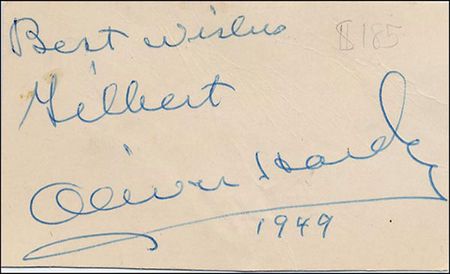 Best wishes $185
Gilbert
Oliver Hardy
1949